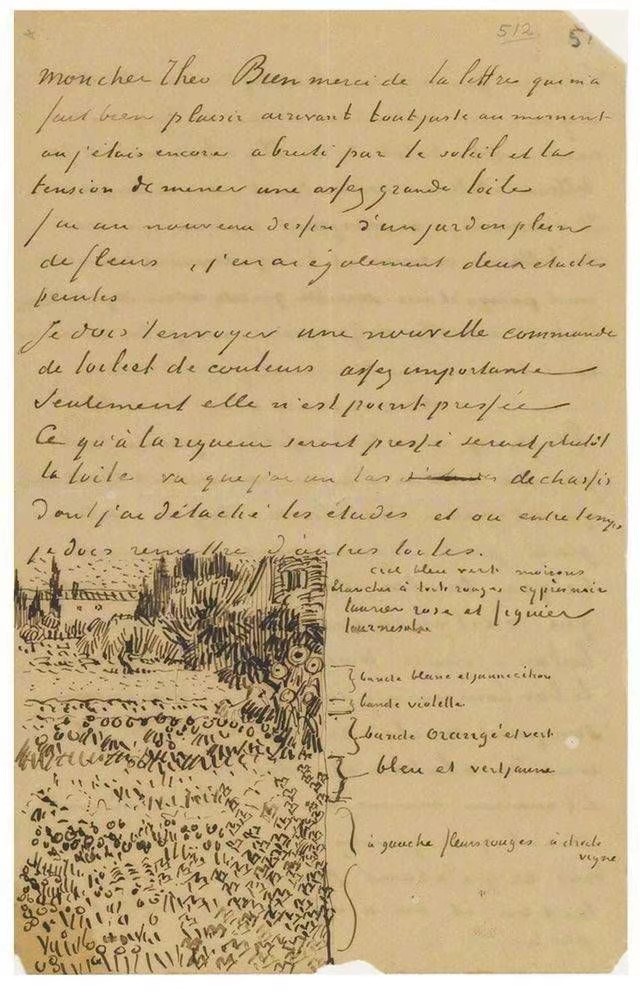 512 5
Mon cher Theo Bien merci de ta lettre qui m'a
fait bien plaisir arrivant tout juste au moment
ou j'étais encore abruti par le soleil et la
tension de mener une assez grande toile
J'ai un nouveau dessin d'un jardin plein
de fleurs, j'en ai également deux etudes
peintes
Je dois t'envoyer une nouvelle commande
de toile et de couleurs assez importante
Seulement elle n'est point pressée
Ce qu'à la rigueur serait pressé serait plutôt
la toile vu que j'ai un tas de chassis
Dont j'ai détaché les études et ou entre temps
je dois remettre d'autres toiles.
ciel bleu vert maisons
blanches à toits rouges cyprès noir
laurier rose et figuier
bande blanc et jaune citron
bande violette
bande Orangé et vert
bleu et vert jaune
à gauche fleurs rouges à droite
vigne